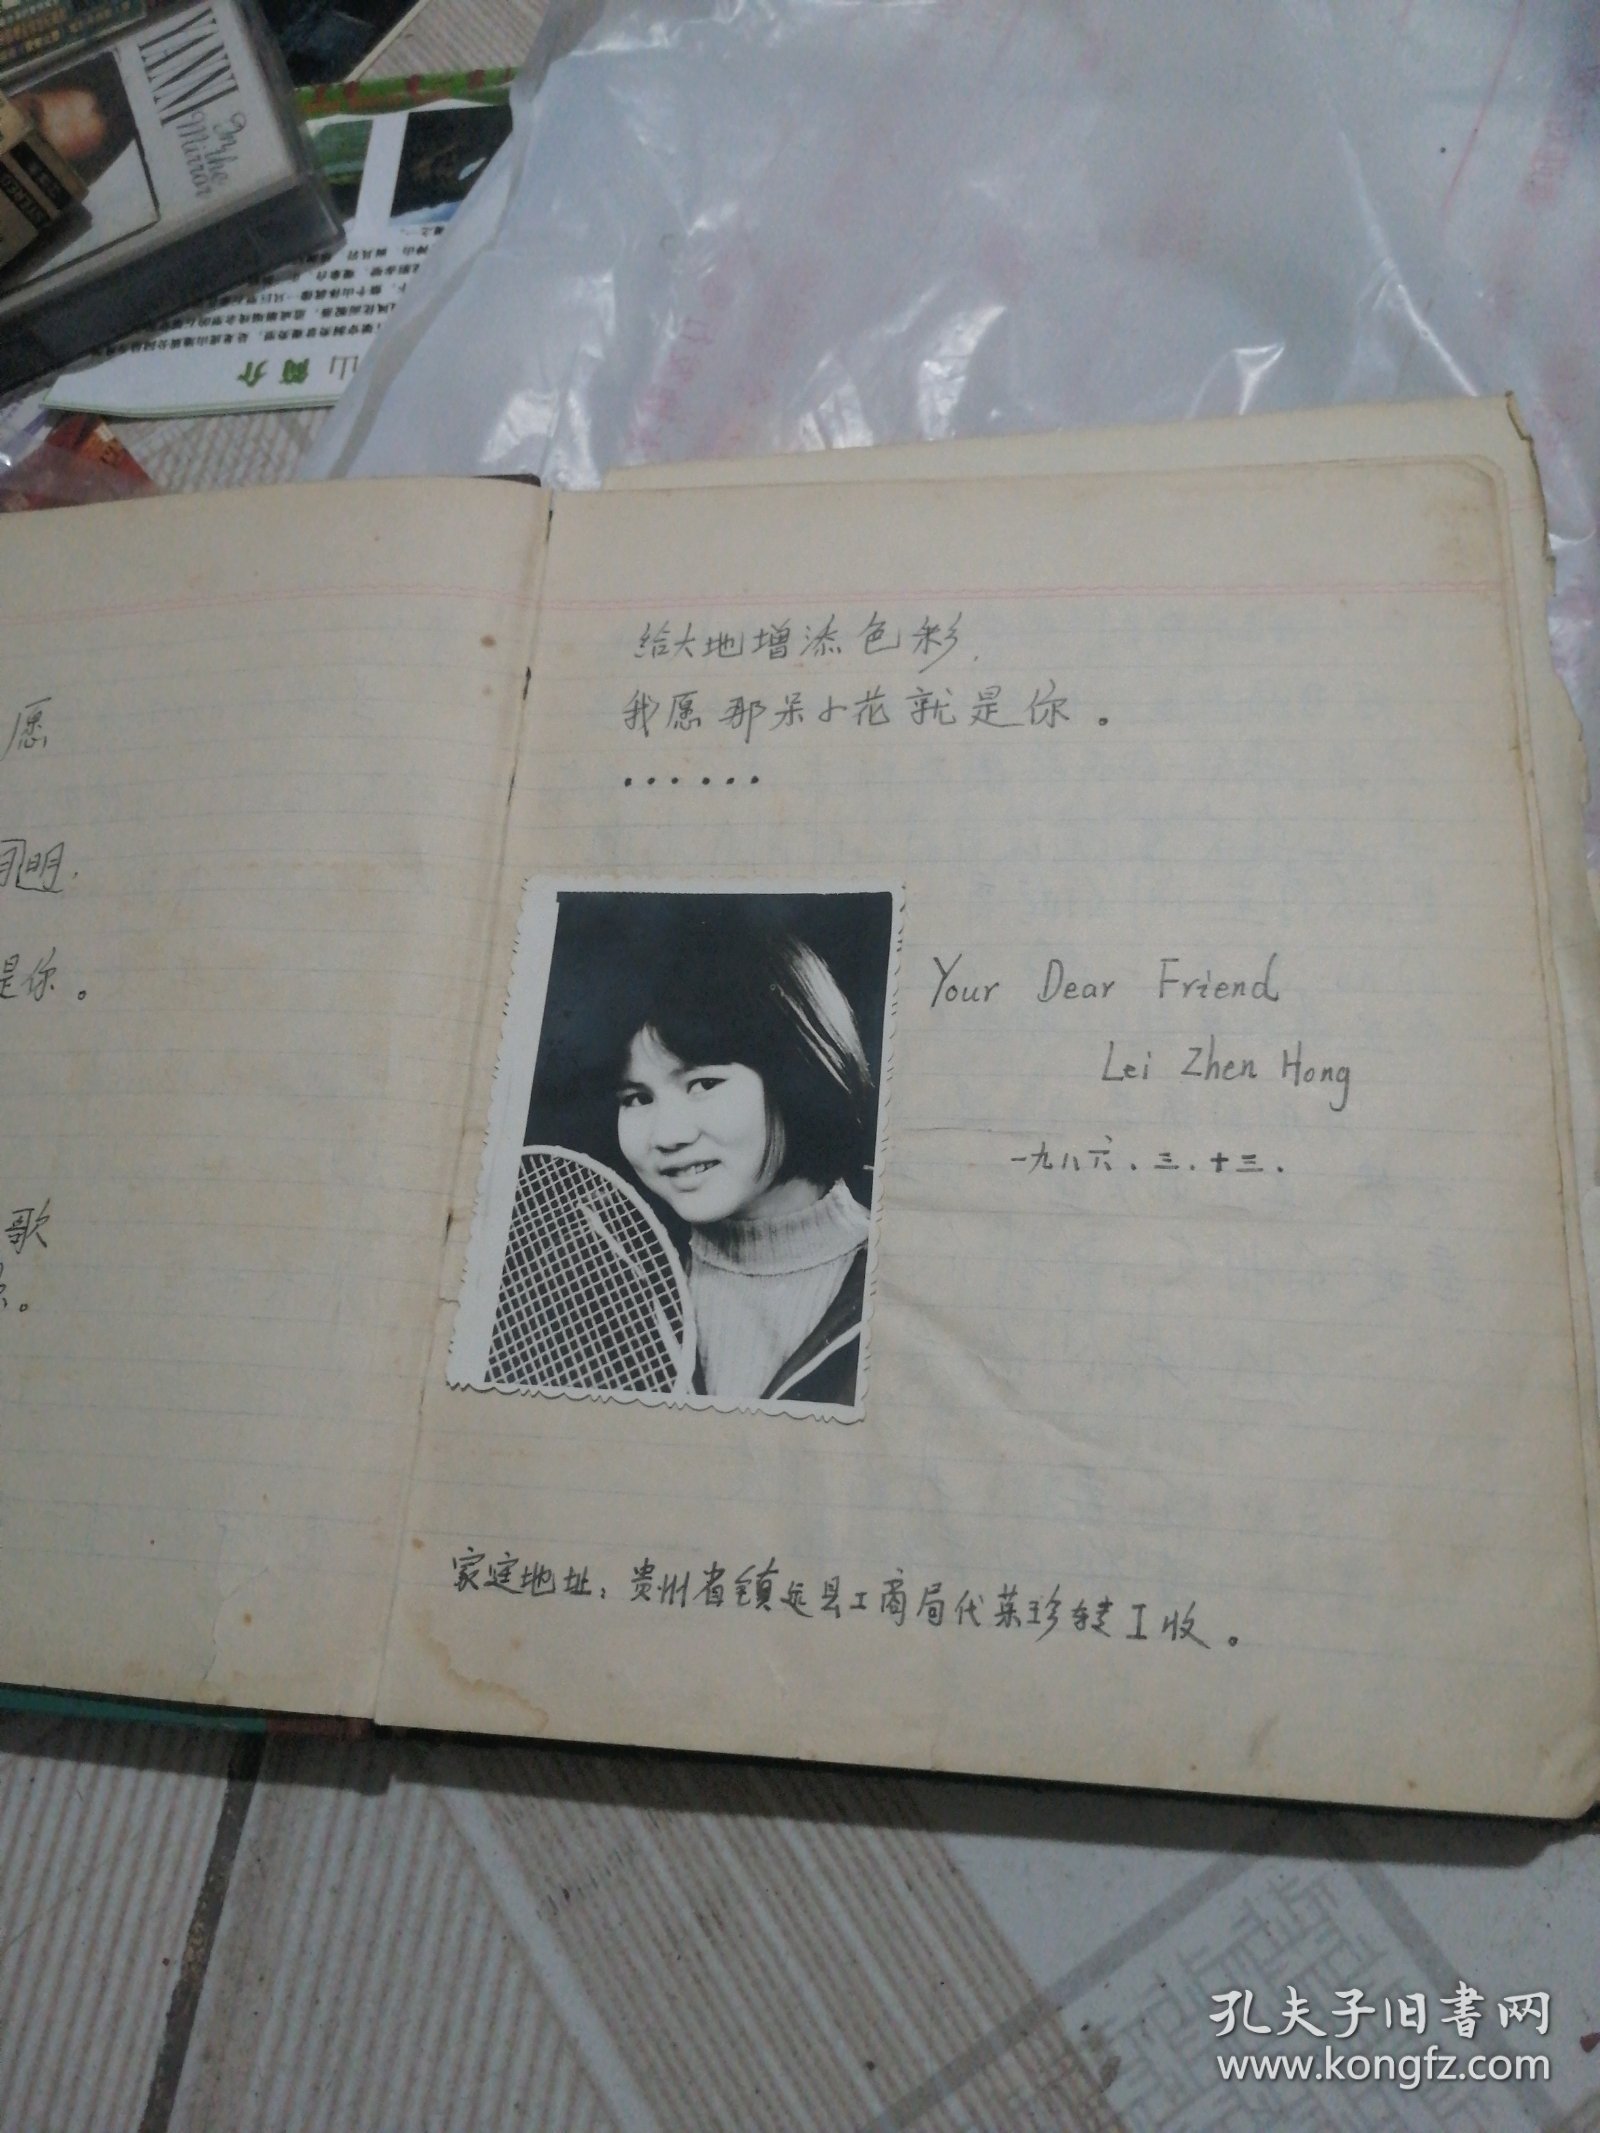 YANNI
In the
Mirror
山简介
愿
明.
是你。
歌
给大地增添色彩.
我愿那朵小花就是你。
······
Your Dear Friend
Lei Zhen Hong
一九八六.三.十三.
家庭地址:贵州省镇远县工商局代莱珍转工收。
孔夫子旧书网
www.kongfz.com